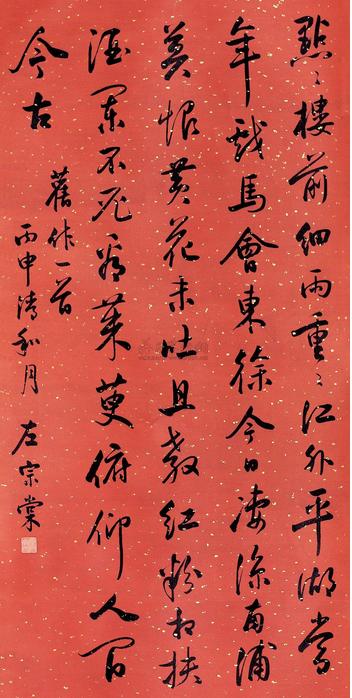 點〻樓前細雨重〻江外平湖當
年戲馬會東徐今日凄涼南浦
莫恨黃花未吐且教紅粉相扶
酒闌不必看茱萸俯仰人間
今古
舊作一首
丙申清和月 左宗棠